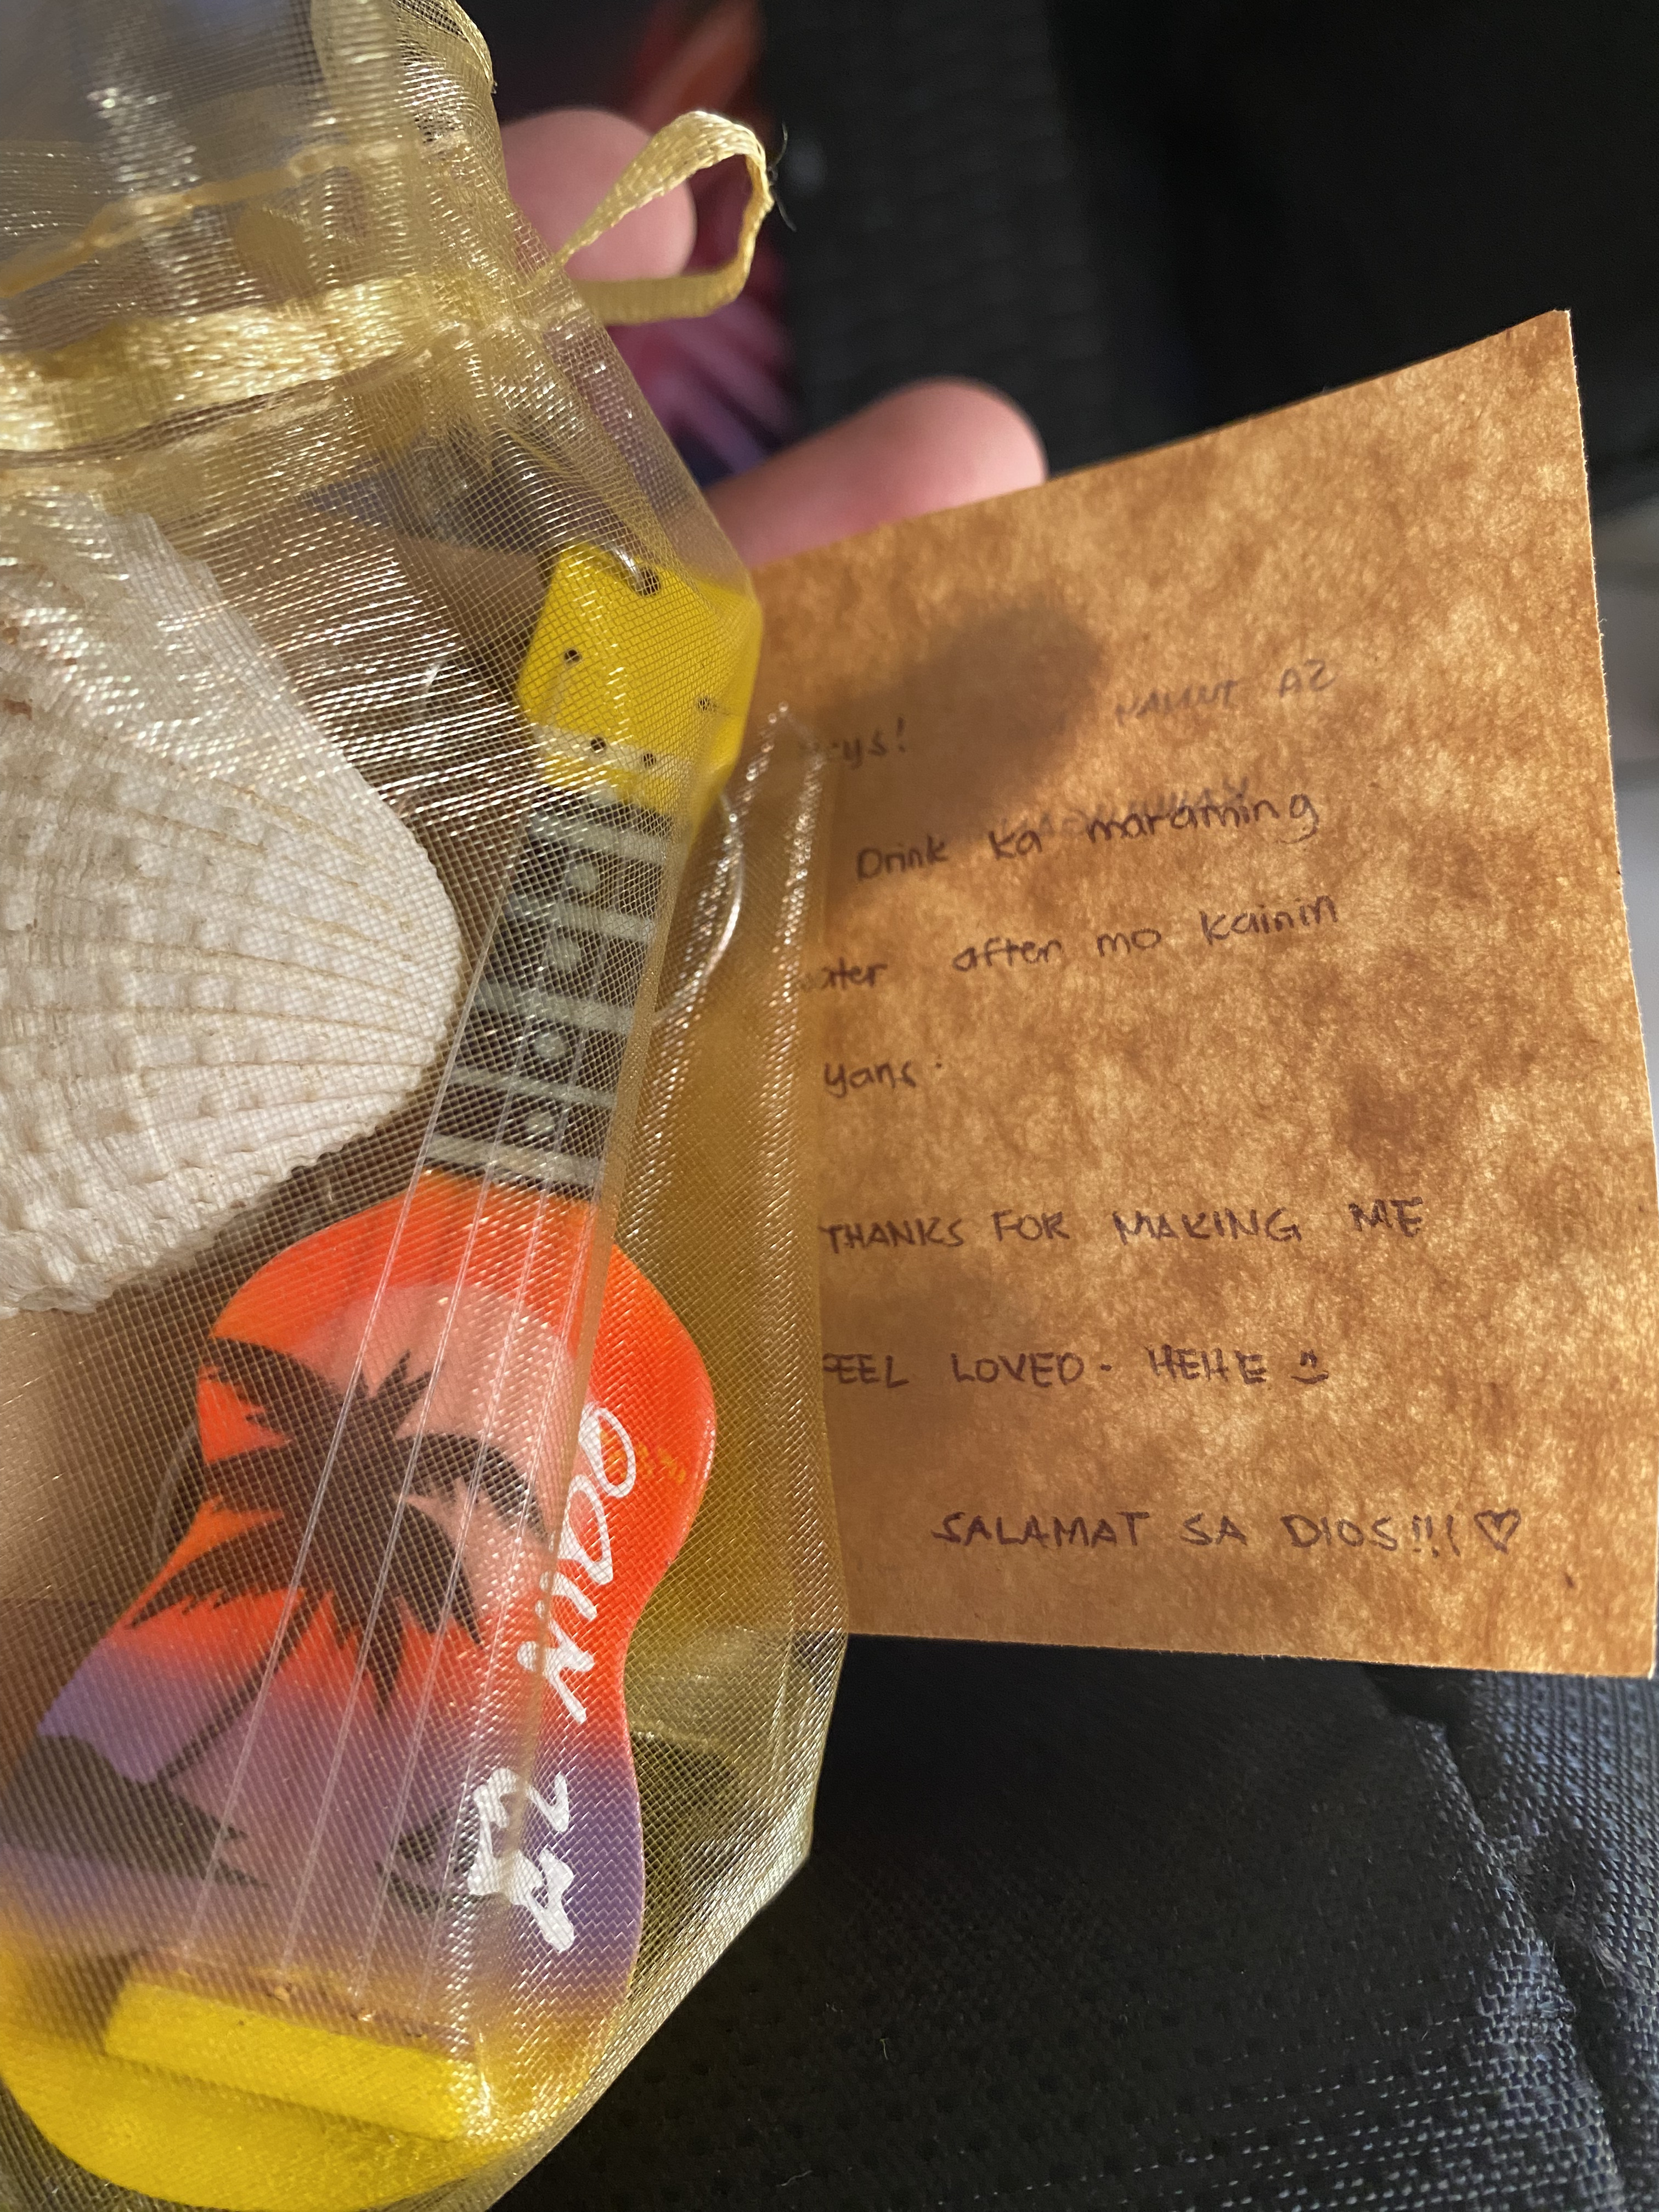 eys!
Drink ka maraming
ater after mo kainin
yans.
THANKS FOR MAKING ME
FEEL LOVED - HEHE
SALAMAT SA DIOS!!! ♡